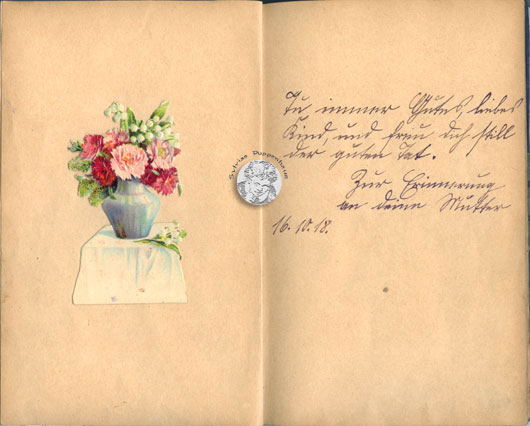 Tu immer Gutes, liebes
Kind, und freu dich still
der guten Tat.
Zur Erinnerung
an deine Mutter
16.10.18.
Sylvias Puppenhaus